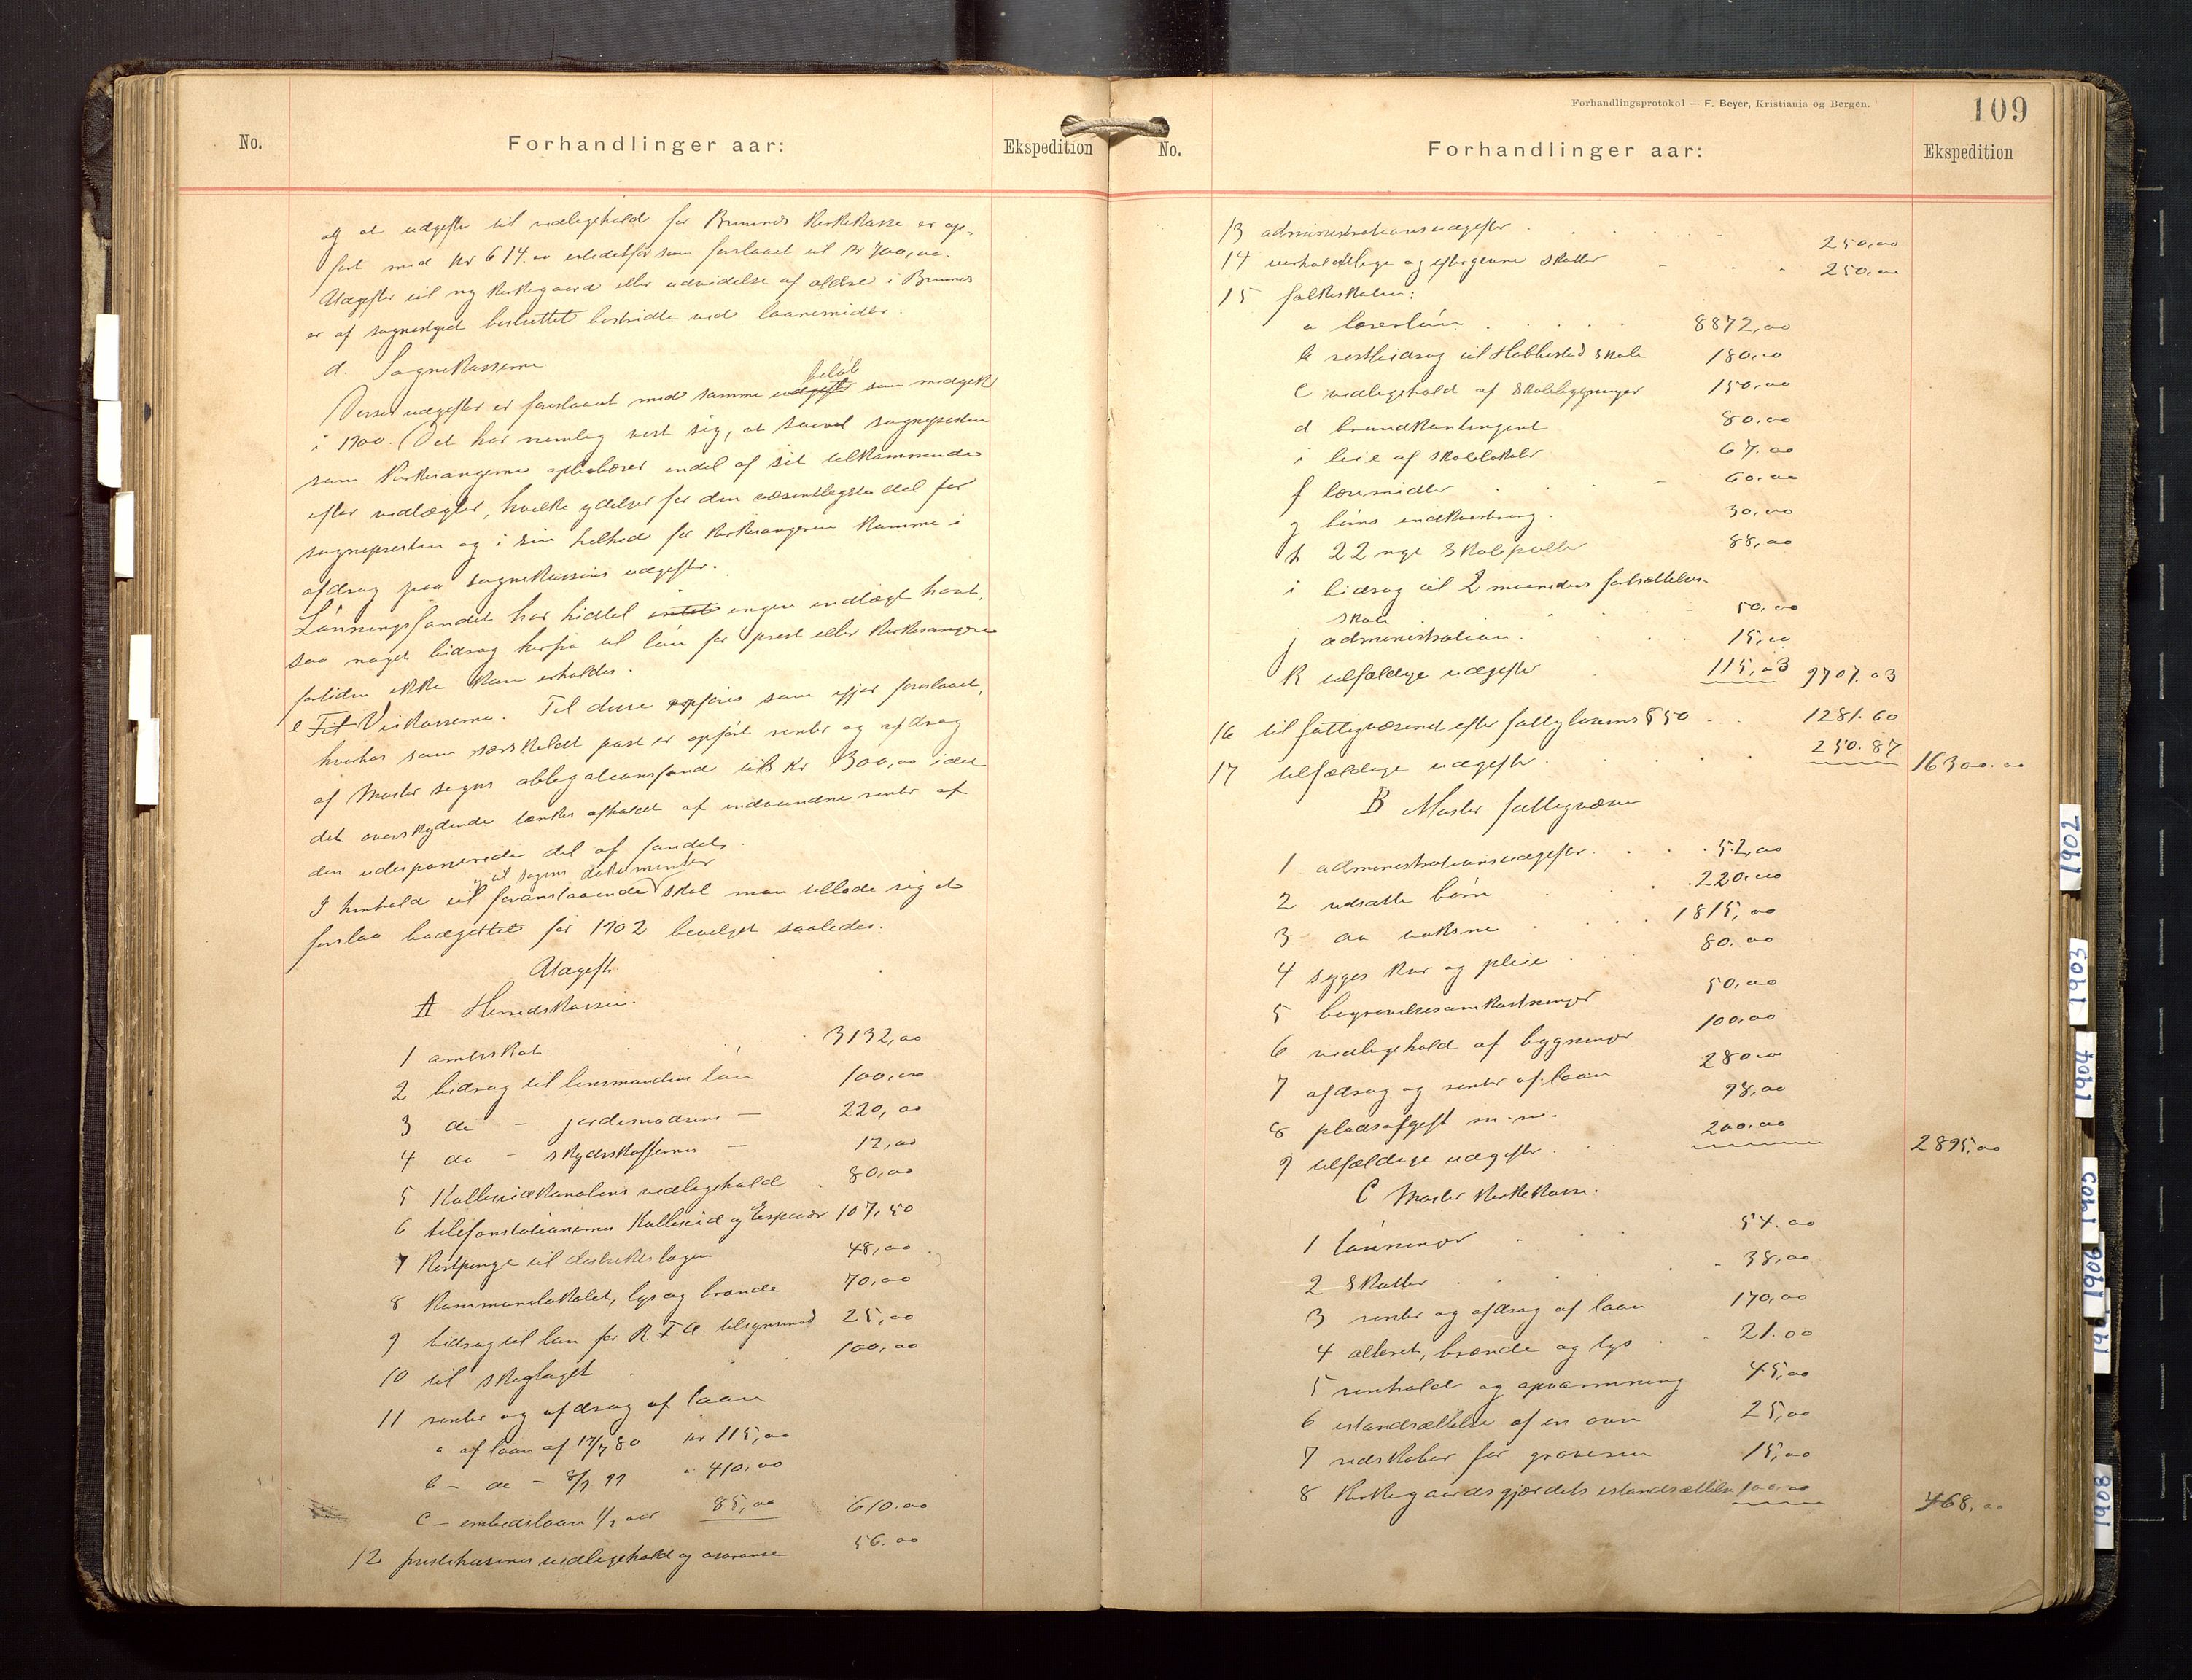 No.
Forhandlinger aar:
Ekspedition
og at udgifter til vedligehold for Bremnes Kirkekasse er op-
ført med kr 614.00 istedetfor som foreslaaet til kr 700,00.
Udgifter til ny kirkegaard eller udvidelse af ældre i Bremnes
er af sognestyret besluttet bestridte ved laanemidler.
d. Sognekasserne
beløb
Disses udgifter er foreslaaet med samme udgifter som medgik
i 1900. Det har nemlig vist sig, at saavel sognepresten
som kirkesangerne oppebærer endel af sit tilkommende
efter vedtægter, hvilke ydelser for den væsentligste del for
sognepresten og i sin helhed for kirkesangeren komme i
afdrag paa sognekassens udgifter.
Lønningsfondet har hidtil intet ingen indtægt havt,
saa noget bidrag herfra til løn for prest eller kirkesangere
fortiden ikke kan erholdes.
e Til Veikasserne. Til disse opføres som ifjor foreslaaet,
hvorhos som særskildt post er opført renter og afdrag
af Moster sogns obligationsfond til kr 300,00 idet
det overskydende tænkes afholdt af indvundne renter af
den udisponerede del af fondet.
og til sagens dokumenter
I henhold til foranstaaende skal man tillade sig at
forslaa budgettet for 1902 bevilget saaledes:
Udgift.
A Herredskassen.
1 amtsskat 3132,00
2 bidrag til lensmandens løn 100,00
3 do - jordemoderens — 220,00
4 do - skydsskafferens — 12,00
5 Kulleseidkanalens vedligehold 80,00
6 telefonstationerne Kulleseid og Espevær 107,50
7 Kostpenge til distriktslægen 48,00
8 Kommunelokalet, lys og brænde 70,00
9 bidrag til løn for R.F.A. tilsynsmand 25,00
10 til skoglaget 100,00
11 renter og afdrag af laan
a af laan af 17/7 80 kr 115,00
b - do - 8/9 99 " 410,00
c - embedslaan 1/2 aar 85,00 610.00
12 prestehusenes vedligehold og assurance 56.00
Forhandlingsprotokol — F. Beyer, Kristiania og Bergen.
109
No.
Forhandlinger aar:
Ekspedition
13 administrationsudgifter 250,00
14 uerholdelige og eftergivne skatter 250,00
15 folkeskolen:
a lærerløn 8872,00
b restbidrag til Hebbested skole 180,00
c vedligehold af skolebygninger 150,00
d brandkontingent 80,00
i leie af skolelokaler 67.00
f læremidler 60,00
g børns indkvartering 30,00
h 22 nye skolepulte 88,00
i bidrag til 2 maaneders fortsættelses-
skole 50,00
j administration 15,00
k tilfældige udgifter 115,03 9707.03
16 til fattigvæsenet efter fattiglovens § 50 1281.60
17 tilfældige udgifter 250.87 16300.00
B Moster fattigvæsen
1 administrationsudgifter 52,00
2 udsatte børn 220,00
3 do voksne 1815,00
4 syges kur og pleie 80.00
5 begravelsesomkostninger 50,00
6 vedligehold af bygninger 100,00
7 afdrag og renter af laan 280,00
8 pladsafgift m.m. 98,00
9 tilfældige udgifter 200,00 2895,00
C Moster Kirkekasse.
1 lønninger 54.00
2 Skatter 38,00
3 renter og afdrag af laan 170,00
4 alteret, brænde og lys 21.00
5 renhold og opvarmning 45,00
6 istandsættelse af en ovn 25,00
7 redskaber for graveren 15,00
8 Kirkegaardsgjærdets istandsættelse 100,00 468,00
1902
1903
1904
1905
1906
190
1908